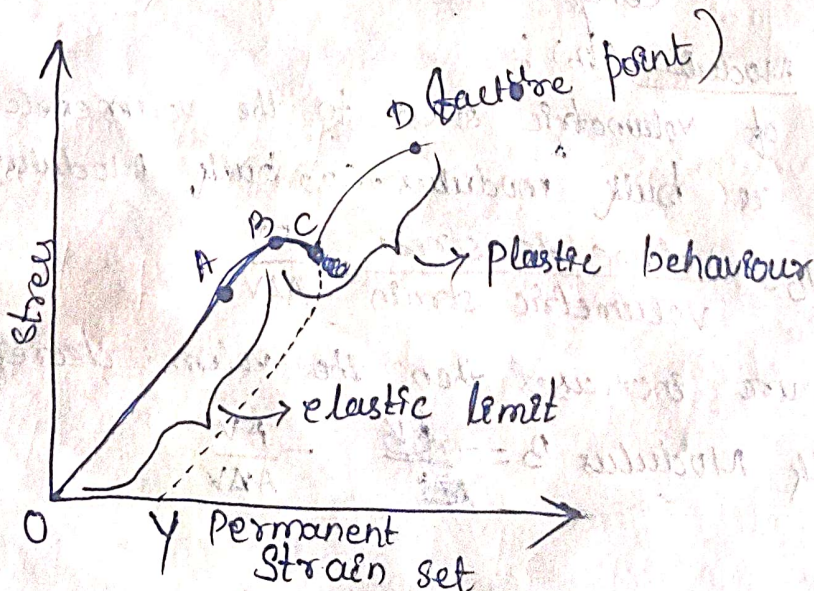 D (facture point)
B C
A
Stress
plastic behaviour
elastic limit
O Y Permanent
Strain set